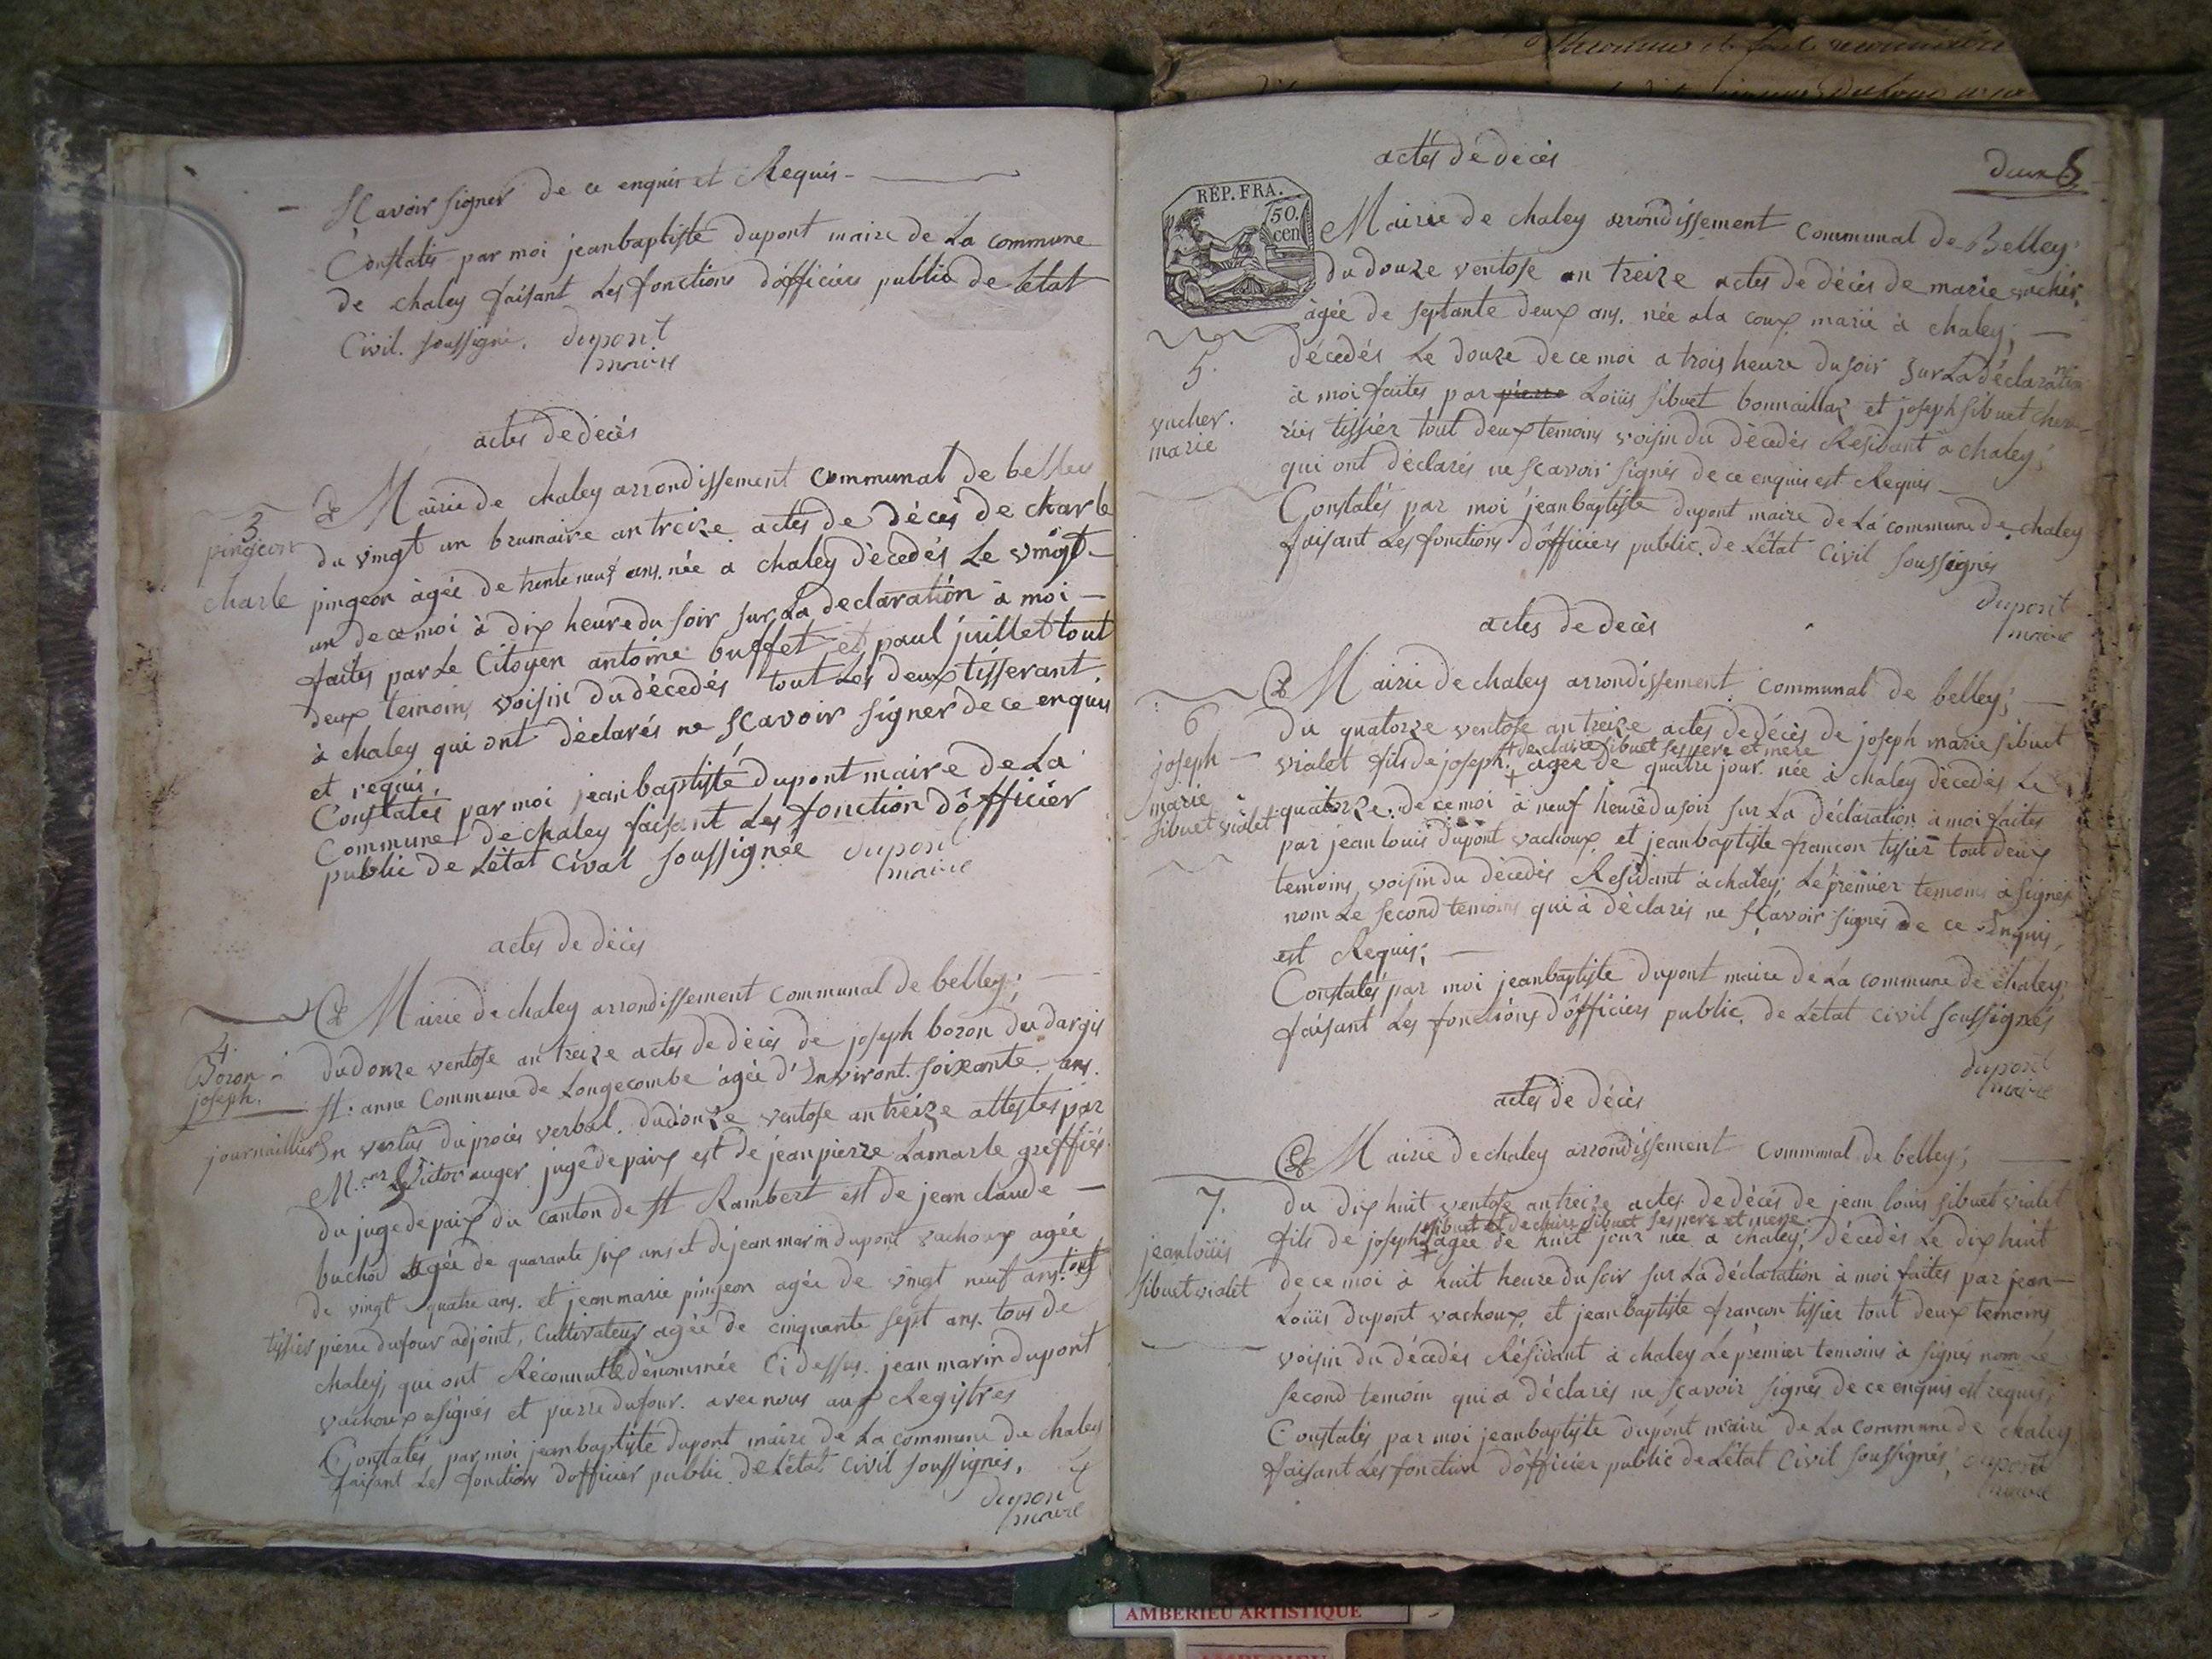 Scavoir signer de ce enquis et Requis
Constatés par moi jeanbaptiste dupont maire de La commune
de chaley faisant Les fonctions d'officiers public de letat
Civil. soussigné. dupont
maire
actes de décès
Mairie de chaley arrondissement communal de belley
3
pingeon
charle
du vingt un brumaire an treize actes de décès de charle
pingeon âgée de trente neuf ans. née a chaley décedés Le vingt
un de ce moi à dix heure du soir sur La declaration à moi
faites par Le Citoyen antoine buffet et paul juillet tout
deux temoins voisin du décedés tout Les deux tisserant
à chaley qui ont déclarés ne scavoir signer de ce enquis
et requis
Constatés par moi jeanbaptiste dupont maire de La
Commune de chaley faisant Les fonction d'officier
public de L'état Cival soussignée dupont
maire
actes de décès
Mairie de chaley arrondissement communal de belley;
4
Boron
joseph.
journaillier
du douze ventose an treize actes de décès de joseph boron du dargis
st. anne Commune de Longecombe âgée d'Environt. soixante ans.
En vertus du procès verbal. du donze ventose an treize attestés par
M. Victor auger juge de paix est de jean pierre Lamarle greffiés
du juge de paix du canton de st Rambert est de jean claude
buchod agée de quarante six ans et de jean marin dupont vachoux agée
de vingt quatre ans. et jean marie pingeon agée de vingt neuf ans. tous
tissiés pierre dufour adjoint, Cultivateur agée de cinquante sept ans. tous de
chaley, qui ont Réconnut Le dénommée Ci dessus. jean marin dupont
vachoux a signés et pierre dufour. avec nous aux Registres
Constatés par moi jeanbaptiste dupont maire de La commune de chaley
faisant Les fonction d'officier public de L'état Civil soussignés.
dupont
maire
actes de décès
5
REP. FRA.
50.
cen
Mairie de chaley arrondissement communal de Belley;
du douze ventose an treize actes de décès de marie vacher.
âgée de septante deux ans. née a la coux marié à chaley;
5.
vacher.
marie
décedés Le douze de ce moi a trois heure du soir sur La déclaration
à moi faites par pierre Loüis sibuet bonnaillas et joseph sibuet
tissiér tout deux temoins voisin du décedés Residant a chaley;
qui ont déclarés ne scavoir signés de ce enquis est Requis
Constatés par moi jeanbaptiste dupont maire de La commune de chaley
faisant Les fonctions d'officiers public. de L'état Civil soussignés
dupont
maire
actes de décès
Mairie de chaley arrondissement communal de belley;
6
joseph
marie
sibuet vialet
du quatorze ventose an treize actes de décès de joseph marie sibuet
+ de claire sibuet ses pere et mere
vialet fils de joseph. + agée de quatre jour. née à chaley décedés Le
quatorze. de ce moi à neuf heure du soir sur La déclaration à moi faites
par jean louis dupont vachoux et jeanbaptiste francon tissier tout deux
temoins, voisin du décedés Residant a chaley; Le premier temoins à signés
nom Le second temoins qui à déclarés ne scavoir signés de ce Enquis,
est Requis;
Constatés par moi jeanbaptiste dupont maire de La commune de chaley;
faisant Les fonctions d'officiers public. de L'état Civil soussignés
dupont
maire
actes de décès
Mairie de chaley arrondissement communal de belley;
7.
jean loüis
sibuet vialet
du dix huit ventose an treize actes de décès de jean louis sibuet vialet
sibuet et de claire sibuet ses pere et mere
fils de joseph + agée de huit jour née a chaley; décedés Le dix huit
de ce moi à huit heure du soir sur La déclaration à moi faites par jean
Loüis dupont vachoux, et jeanbaptiste francon tissier tout deux temoins
voisin du décedés Résidant à chaley Le premier temoins à signés nom Le
second temoin qui a déclarés ne scavoir signés de ce enquis est requis;
Constatés par moi jeanbaptiste dupont maire de La commune de chaley
faisant Les fonction d'officier public de L'état Civil soussignés dupont
maire
AMBERIEU ARTISTIQUE
AMBERIEU